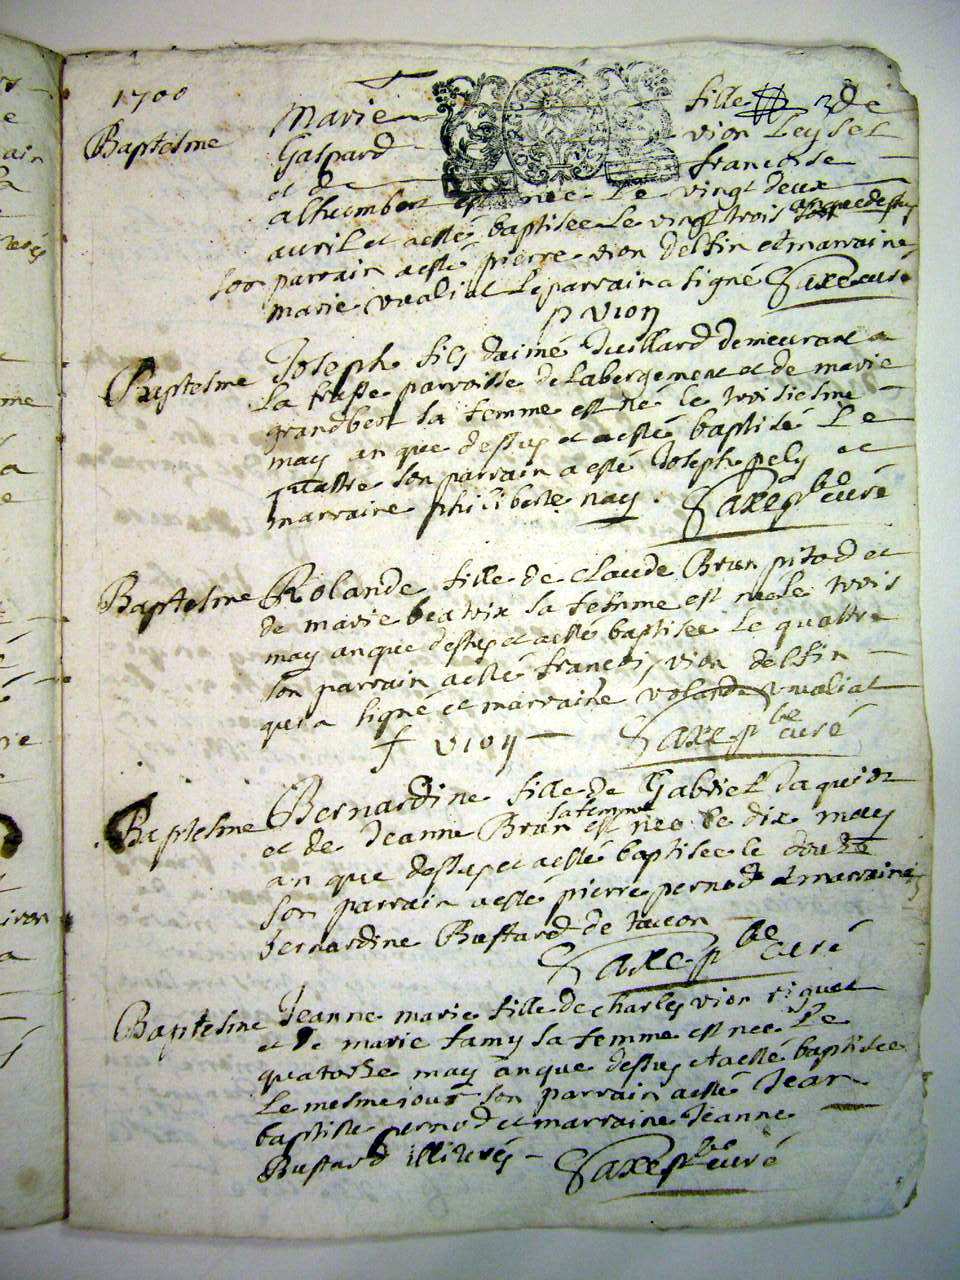 1700
Baptesme
Marie fille de
Gaspard vion Leyset
et de francoise
alhumbert est née Le vingt deux
avril et a esté baptisée Le vingt trois an que dessus
son parrain a esté pierre vion delfin et marraine
marie vualiat Le parrain a signé Saxe curé
p vion
Baptesme
Joseph fils daimé Juillard demeurant a
La parroisse de Labergement et de marie
grandbert sa femme est né le troisiesme
may an que dessus et a esté baptisé Le
quattre son parrain a esté Joseph pely et
marraine philiberte nay. Saxe pbe curé
Baptesme
Rolande fille de Claude Brun pitod et
de marie beatrix sa femme est née Le trois
may an que dessus et a esté baptisée Le quattre
son parrain a esté francois vion delfin
qui a signé et marraine rolande vualiat
f vion Saxe pbe curé
Baptesme
Bernardine fille de Gabriel Jaquier
et de Jeanne Brun sa femme est née le dix may
an que dessus et a esté baptisée le douze
son parrain a esté pierre pernod et marraine
bernardine Bussard de
Saxe pbe curé
Baptesme
Jeanne marie fille de charles vion riquet
et de marie Lamy sa femme est née Le
quatorze may an que dessus et a esté baptisée
Le mesme jour son parrain a esté Jean
baptiste pernod et marraine Jeanne
Bussard illiterés Saxe pbe curé